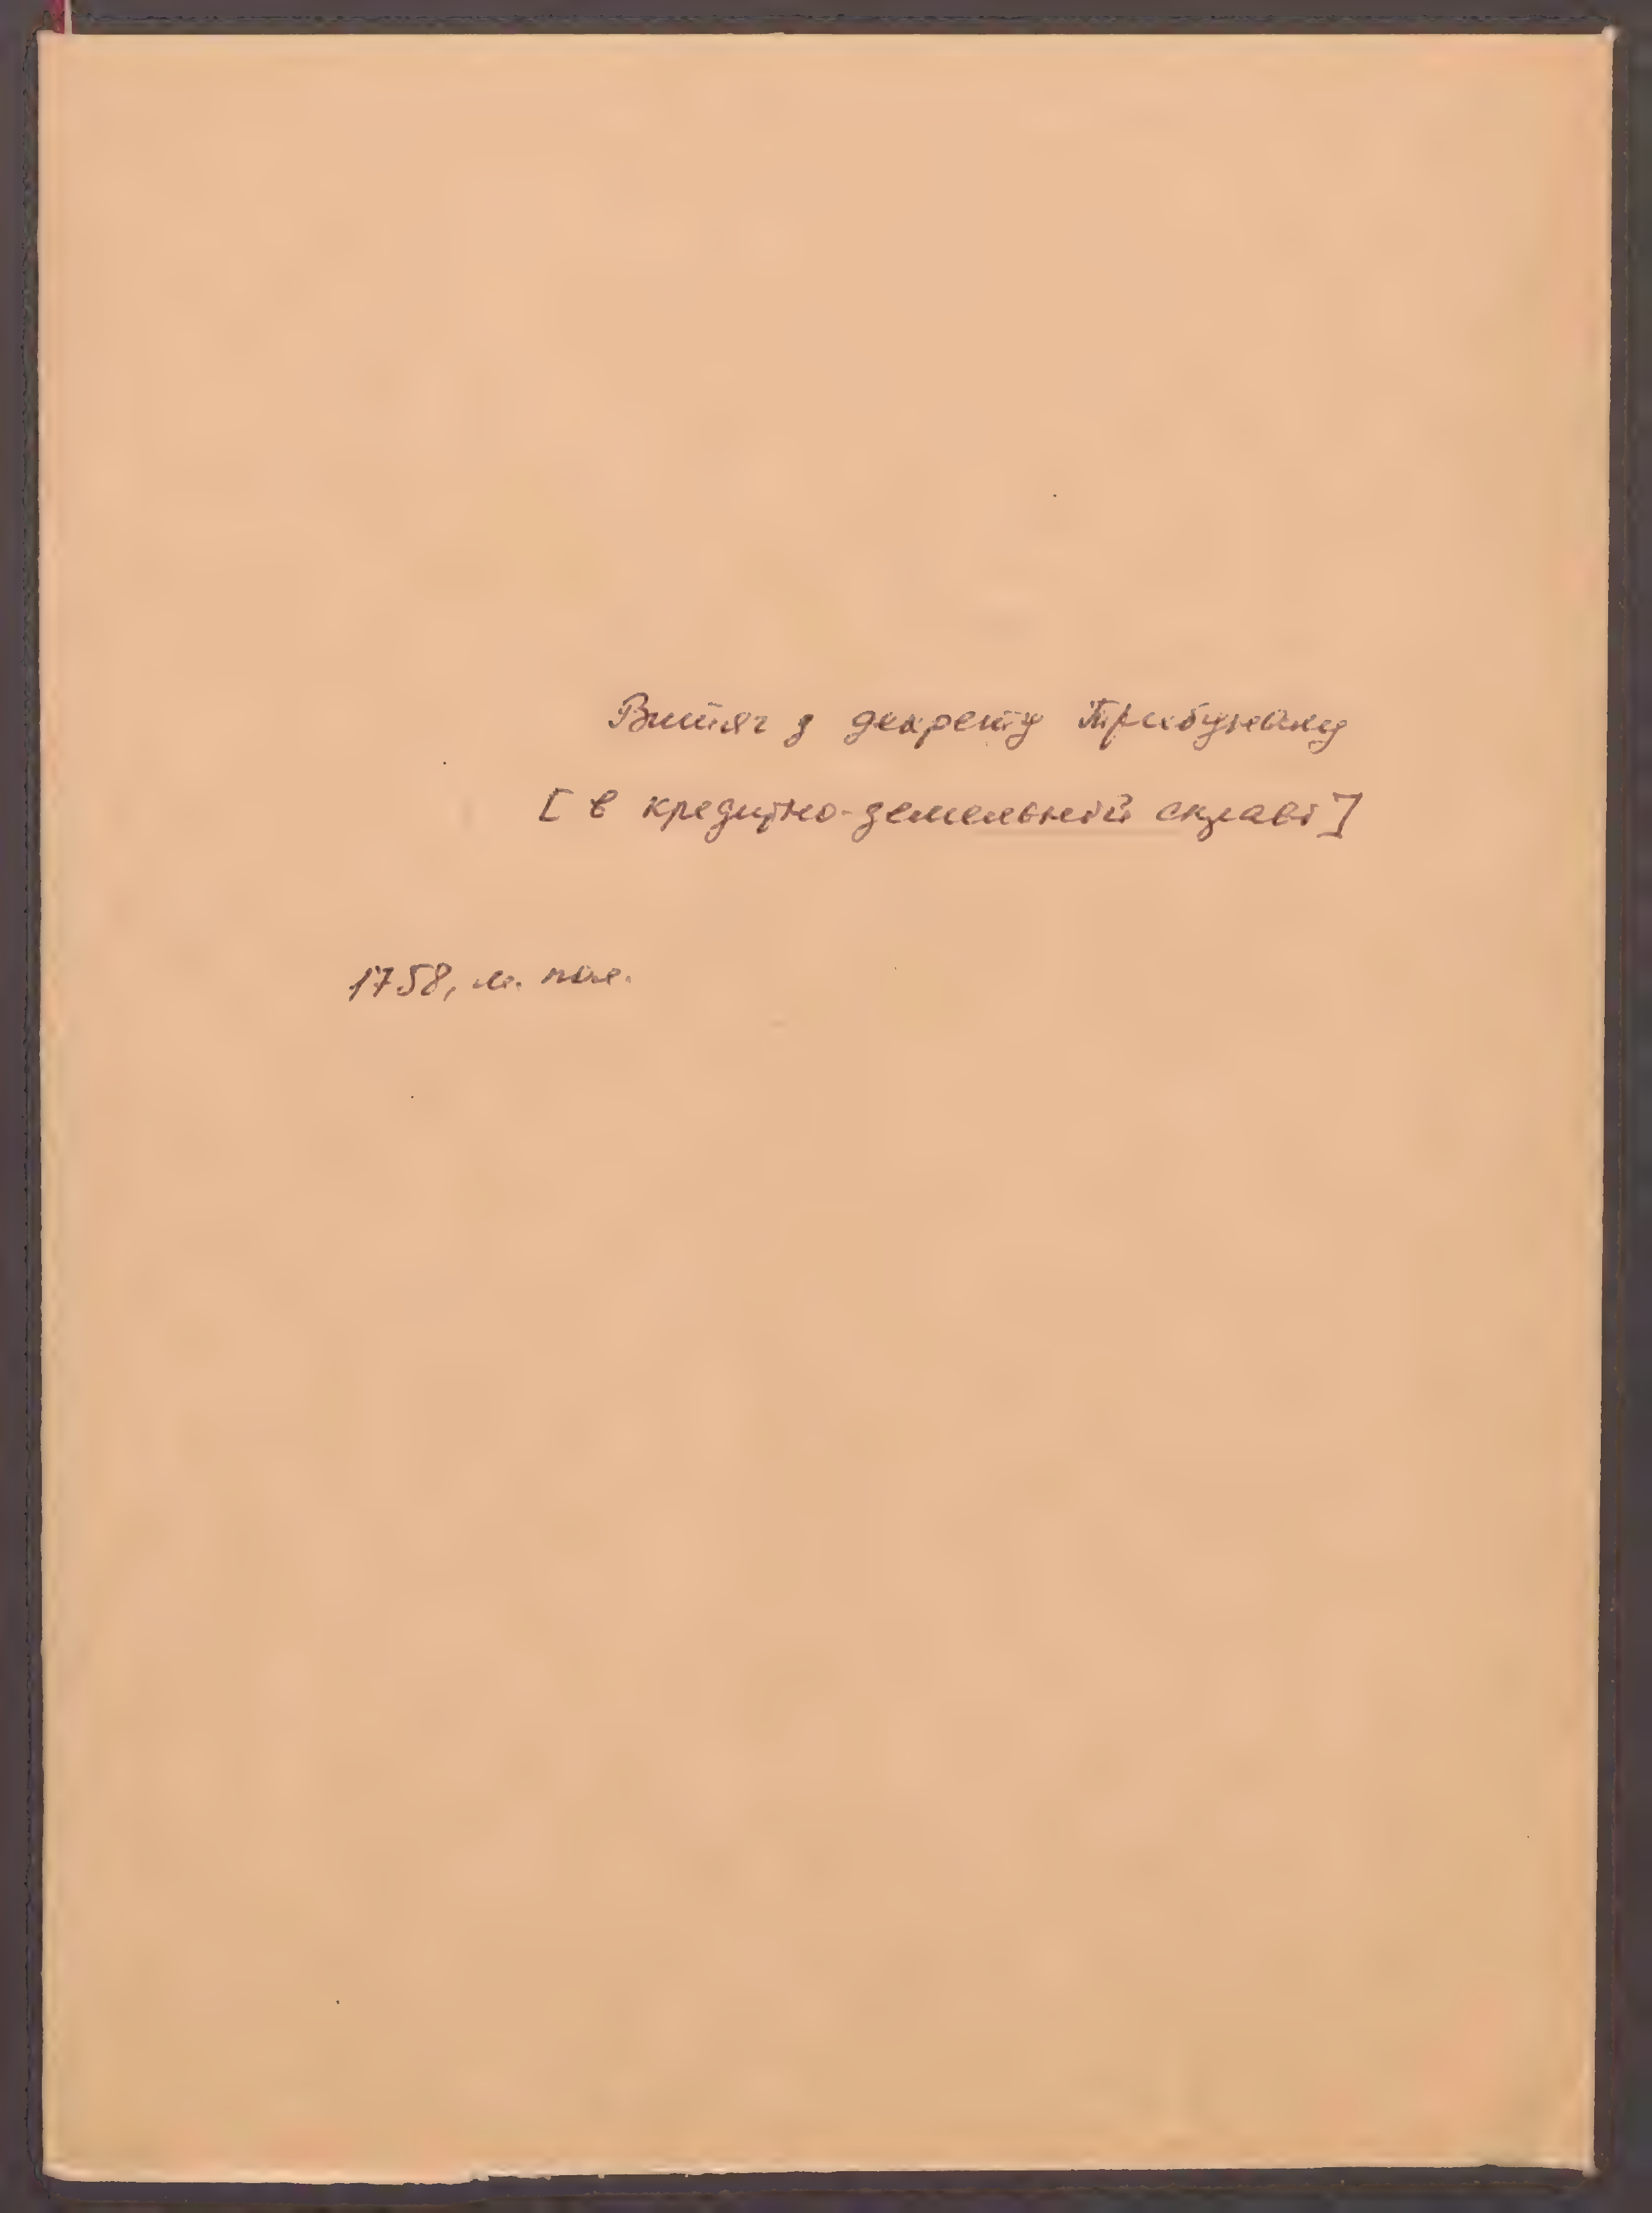 Витяг з декрету Трибуналу
[в кредитно-земельній справі]
1758, м. пол.